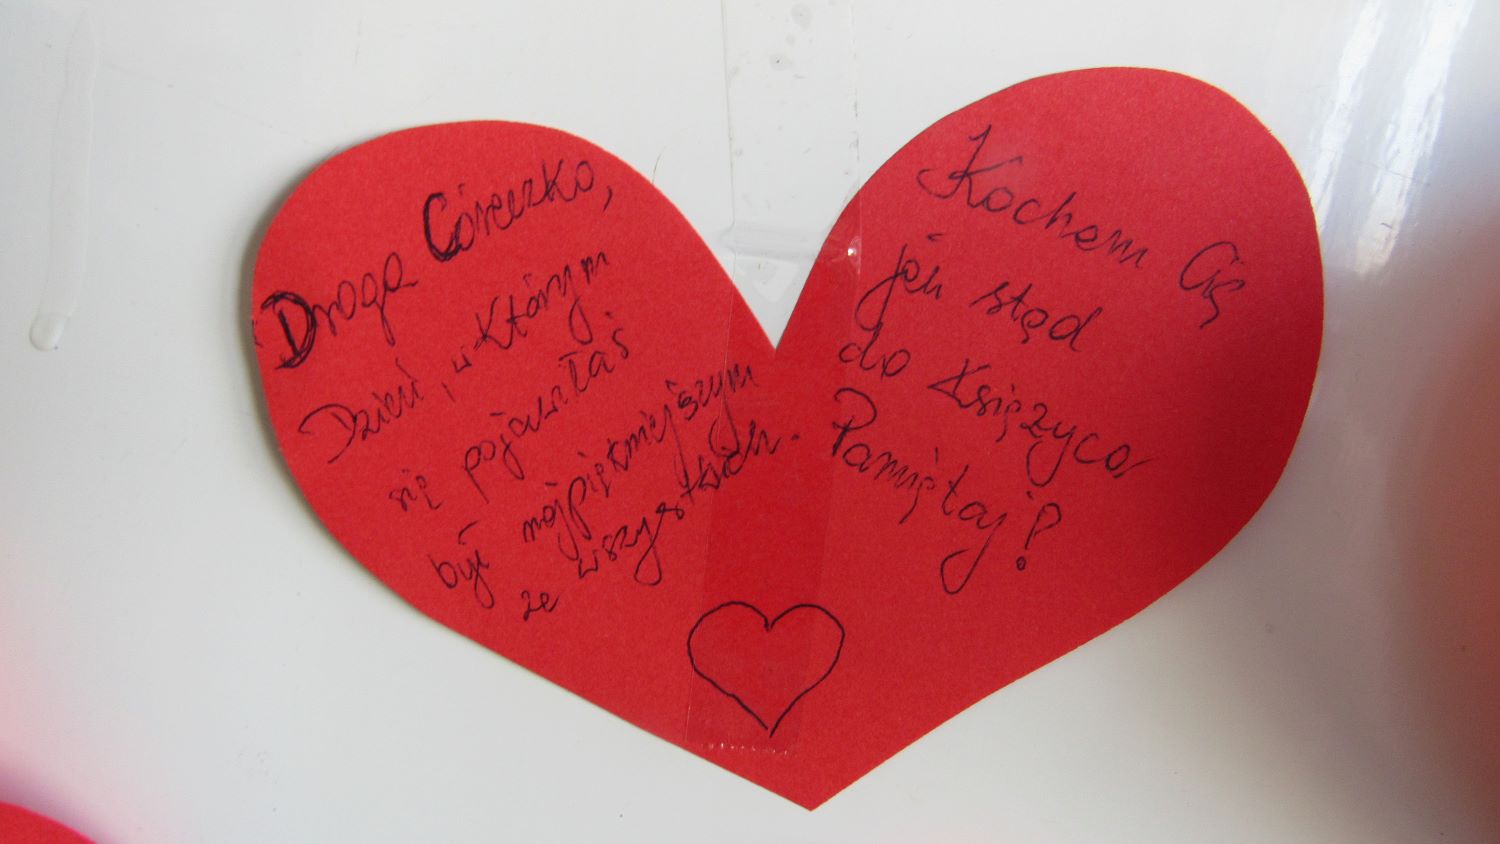 Droga Córeczko,
Dzień, w którym
się pojawiłaś
był najpiękniejszym
ze wszystkich.
Kocham Cię
jak stąd
do księżyca
Pamiętaj!